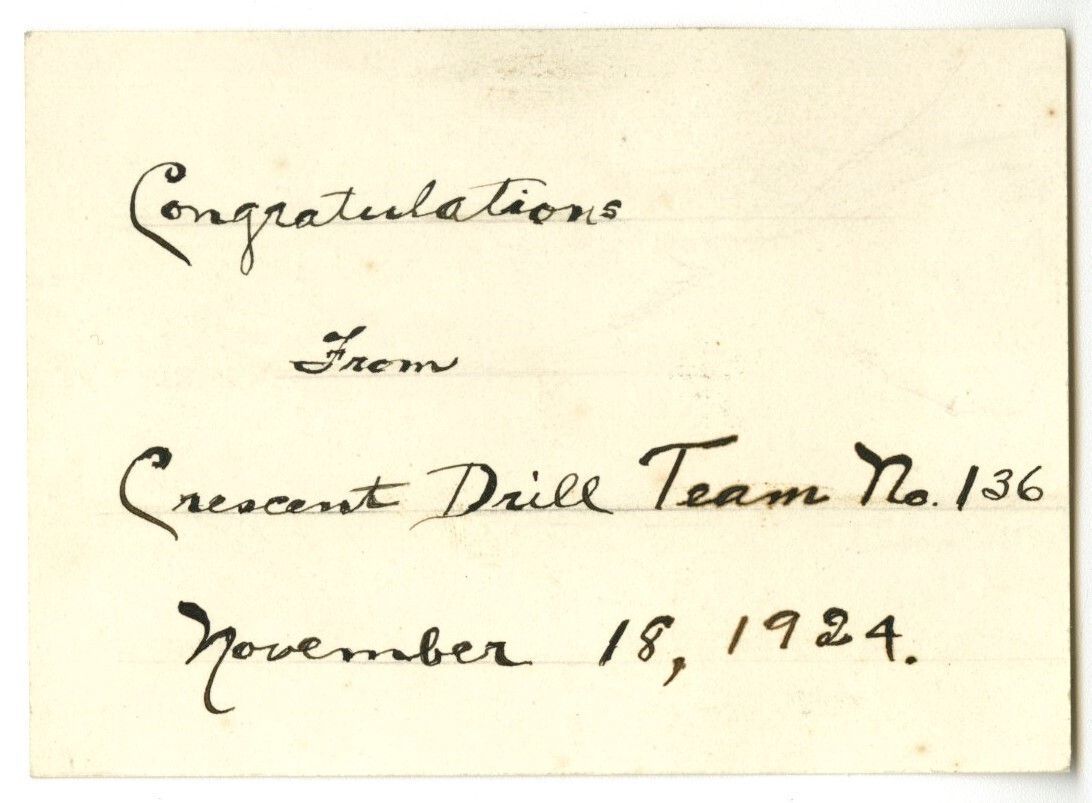 Congratulations
From
Crescent Drill Team No. 136
November 18, 1924.